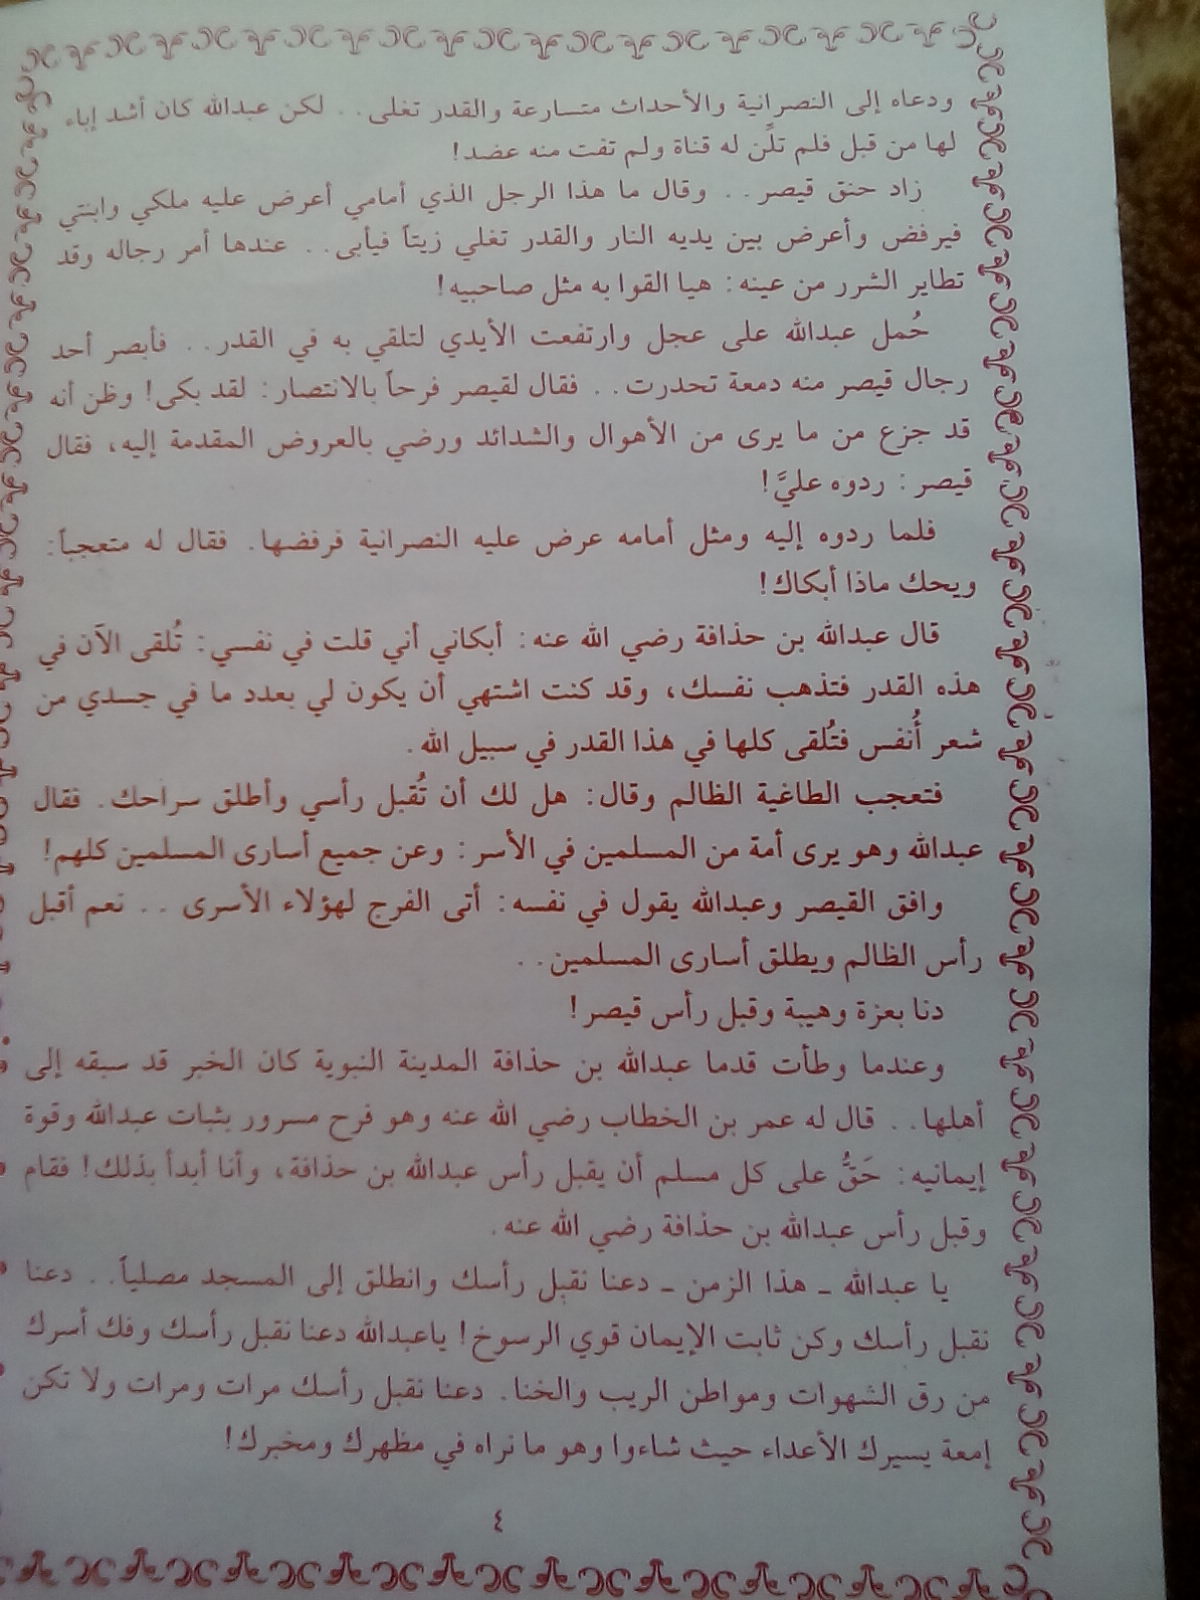 ودعاه إلى النصرانية والأحداث متسارعة والقدر تغلى.. لكن عبدالله كان أشد إباء
لها من قبل فلم تلِّن له قناة ولم تفت منه عضد!
زاد حنق قيصر.. وقال ما هذا الرجل الذي أمامي أعرض عليه ملكي وابنتي
فيرفض وأعرض بين يديه النار والقدر تغلي زيتاً فيأبى.. عندها أمر رجاله وقد
تطاير الشرر من عينه: هيا القوا به مثل صاحبيه!
حُمل عبدالله على عجل وارتفعت الأيدي لتلقي به في القدر.. فأبصر أحد
رجال قيصر منه دمعة تحدرت.. فقال لقيصر فرحاً بالانتصار: لقد بكى! وظن أنه
قد جزع من ما يرى من الأهوال والشدائد ورضي بالعروض المقدمة إليه، فقال
قيصر: ردوه عليَّ!
فلما ردوه إليه ومثل أمامه عرض عليه النصرانية فرفضها. فقال له متعجباً:
ويحك ماذا أبكاك!
قال عبدالله بن حذافة رضي الله عنه: أبكاني أني قلت في نفسي: تُلقى الآن في
هذه القدر فتذهب نفسك، وقد كنت اشتهي أن يكون لي بعدد ما في جسدي من
شعر أُنفس فتُلقى كلها في هذا القدر في سبيل الله.
فتعجب الطاغية الظالم وقال: هل لك أن تُقبل رأسي وأطلق سراحك. فقال
عبدالله وهو يرى أمة من المسلمين في الأسر: وعن جميع أسارى المسلمين كلهم!
وافق القيصر وعبدالله يقول في نفسه: أتى الفرج لهؤلاء الأسرى .. نعم أقبل
رأس الظالم ويطلق أسارى المسلمين..
دنا بعزة وهيبة وقبل رأس قيصر!
وعندما وطأت قدما عبدالله بن حذافة المدينة النبوية كان الخبر قد سبقه إلى
أهلها.. قال له عمر بن الخطاب رضي الله عنه وهو فرح مسرور بثبات عبدالله وقوة
إيمانيه: حَقٌّ على كل مسلم أن يقبل رأس عبدالله بن حذافة، وأنا أبدأ بذلك! فقام
وقبل رأس عبدالله بن حذافة رضي الله عنه.
يا عبدالله ـ هذا الزمن ـ دعنا نقبل رأسك وانطلق إلى المسجد مصلياً.. دعنا
نقبل رأسك وكن ثابت الإيمان قوي الرسوخ! ياعبدالله دعنا نقبل رأسك وفك أسرك
من رق الشهوات ومواطن الريب والخنا. دعنا نقبل رأسك مرات ومرات ولا تكن
إمعة يسيرك الأعداء حيث شاءوا وهو ما نراه في مظهرك ومخبرك!
٤